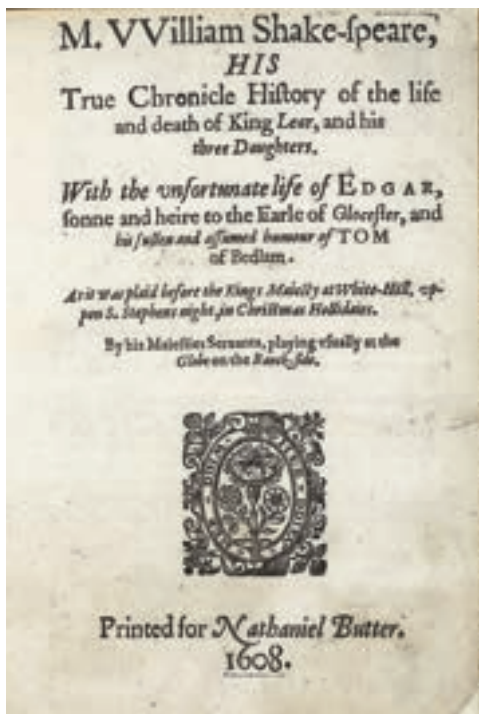 M. VVilliam Shake-ſpeare,
HIS
True Chronicle Hiſtory of the life
and death of King Lear, and his
three Daughters.
With the vnfortunate life of EDGAR,
ſonne and heire to the Earle of Gloceſter, and
his ſullen and aſſumed humour of TOM
of Bedlam.
As it was plaid before the Kings Maieſty at White-Hall, vp-
pon S. Stephens night, in Chriſtmas Hollidaies.
By his Maieſties Seruants, playing vſually at the
Globe on the Banck-ſide.
Printed for Nathaniel Butter.
1608.